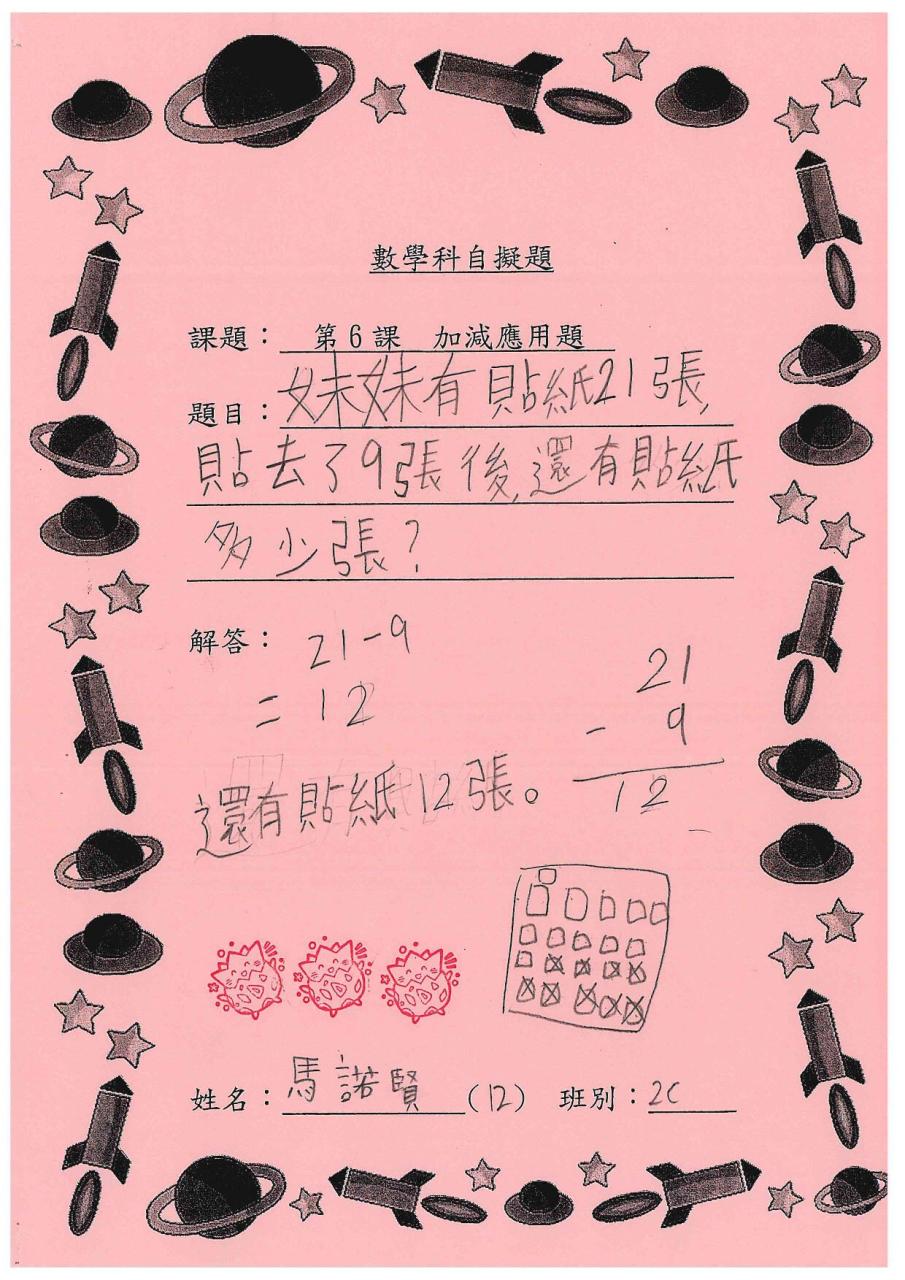 數學科自擬題
課題： 第6課 加減應用題
題目：妹妹有貼紙21張,
貼去了9張後,還有貼紙
多少張?
解答： 21-9
= 12
21
- 9
12
還有貼紙12張。
姓名：馬諾賢(12) 班別：2C